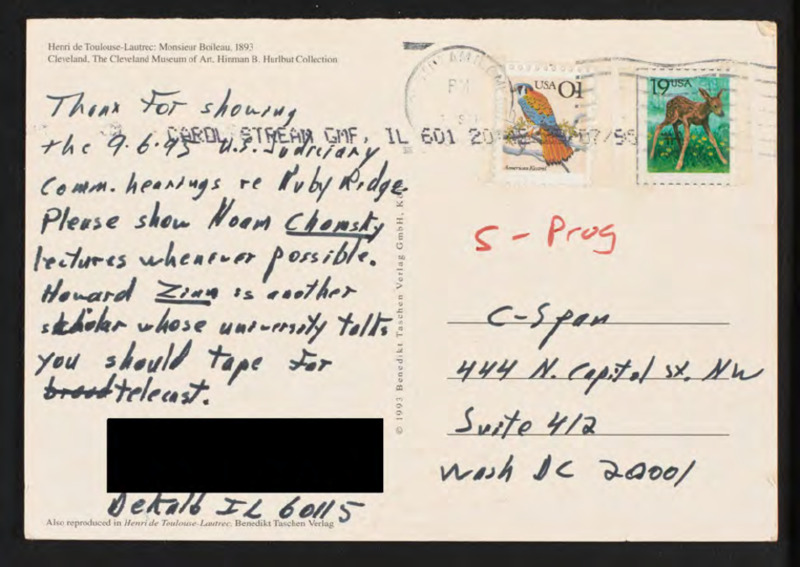 Henri de Toulouse-Lautrec: Monsieur Boileau, 1893
Cleveland, The Cleveland Museum of Art, Hinman B. Hurlbut Collection
Thank For showing
the 9.6.95 U.S. Judiciary
Comm. hearings re Ruby Ridge.
Please show Noam Chomsky
lectures whenever possible.
Howard Zinn is another
scholar whose university talks
you should tape for
broad telecast.
DeKalb IL 60115
Also reproduced in Henri de Toulouse-Lautrec, Benedikt Taschen Verlag
© 1993 Benedikt Taschen Verlag GmbH,
PM
CAROL STREAM GMF, IL 601 20
USA 01
American Kestrel
19 USA
S - Prog
C-Span
444 N. Capitol St. NW
Suite 412
Wash DC 20001